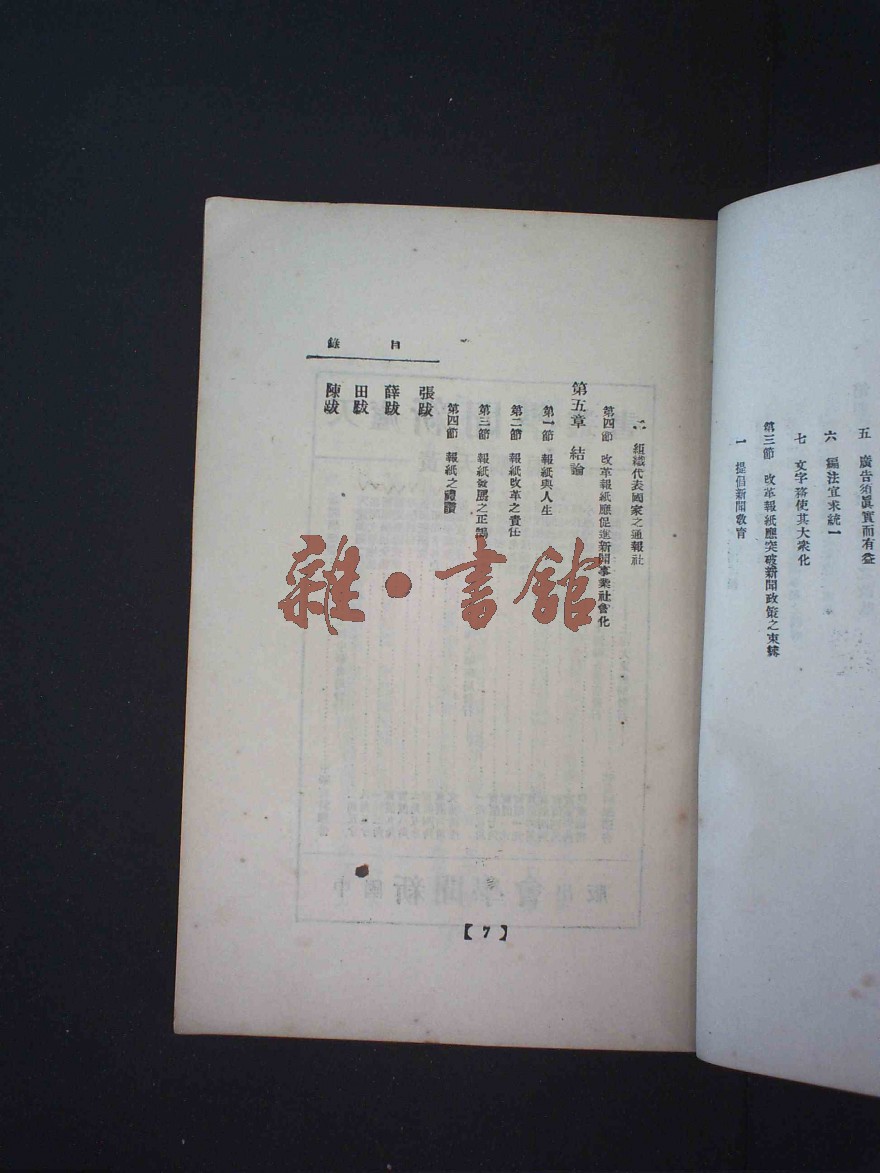 五 廣告須眞實而有益
六 編法宜求統一
七 文字務使其大衆化
第三節 改革報紙應突破新聞政策之束縛
一 提倡新聞敎育
目錄
二 組織代表國家之通報社
第四節 改革報紙應促進新聞事業社會化
第五章 結論
第一節 報紙與人生
第二節 報紙改革之責任
第三節 報紙發展之正鵠
第四節 報紙之禮讚
張跋
薛跋
田跋
陳跋
【7】
雜·書館